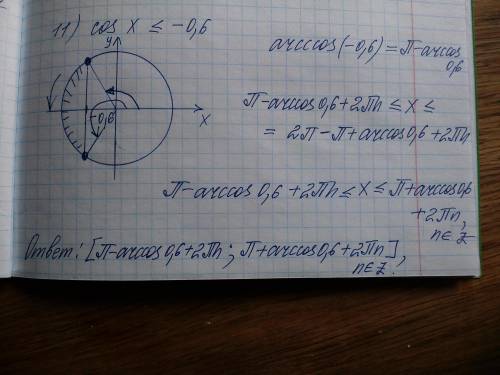 11) cos x ≤ -0,6
y
x
-0,6
arccos(-0,6) = П-arccos
0,6
П-arccos0,6+2Пn ≤ x ≤
= 2П-П+arccos0,6+2Пn
П-arccos0,6+2Пn ≤ x ≤ П+arccos0,6
+2Пn,
n∈Z
Ответ: [П-arccos0,6+2Пn; П+arccos0,6+2Пn],
n∈Z.